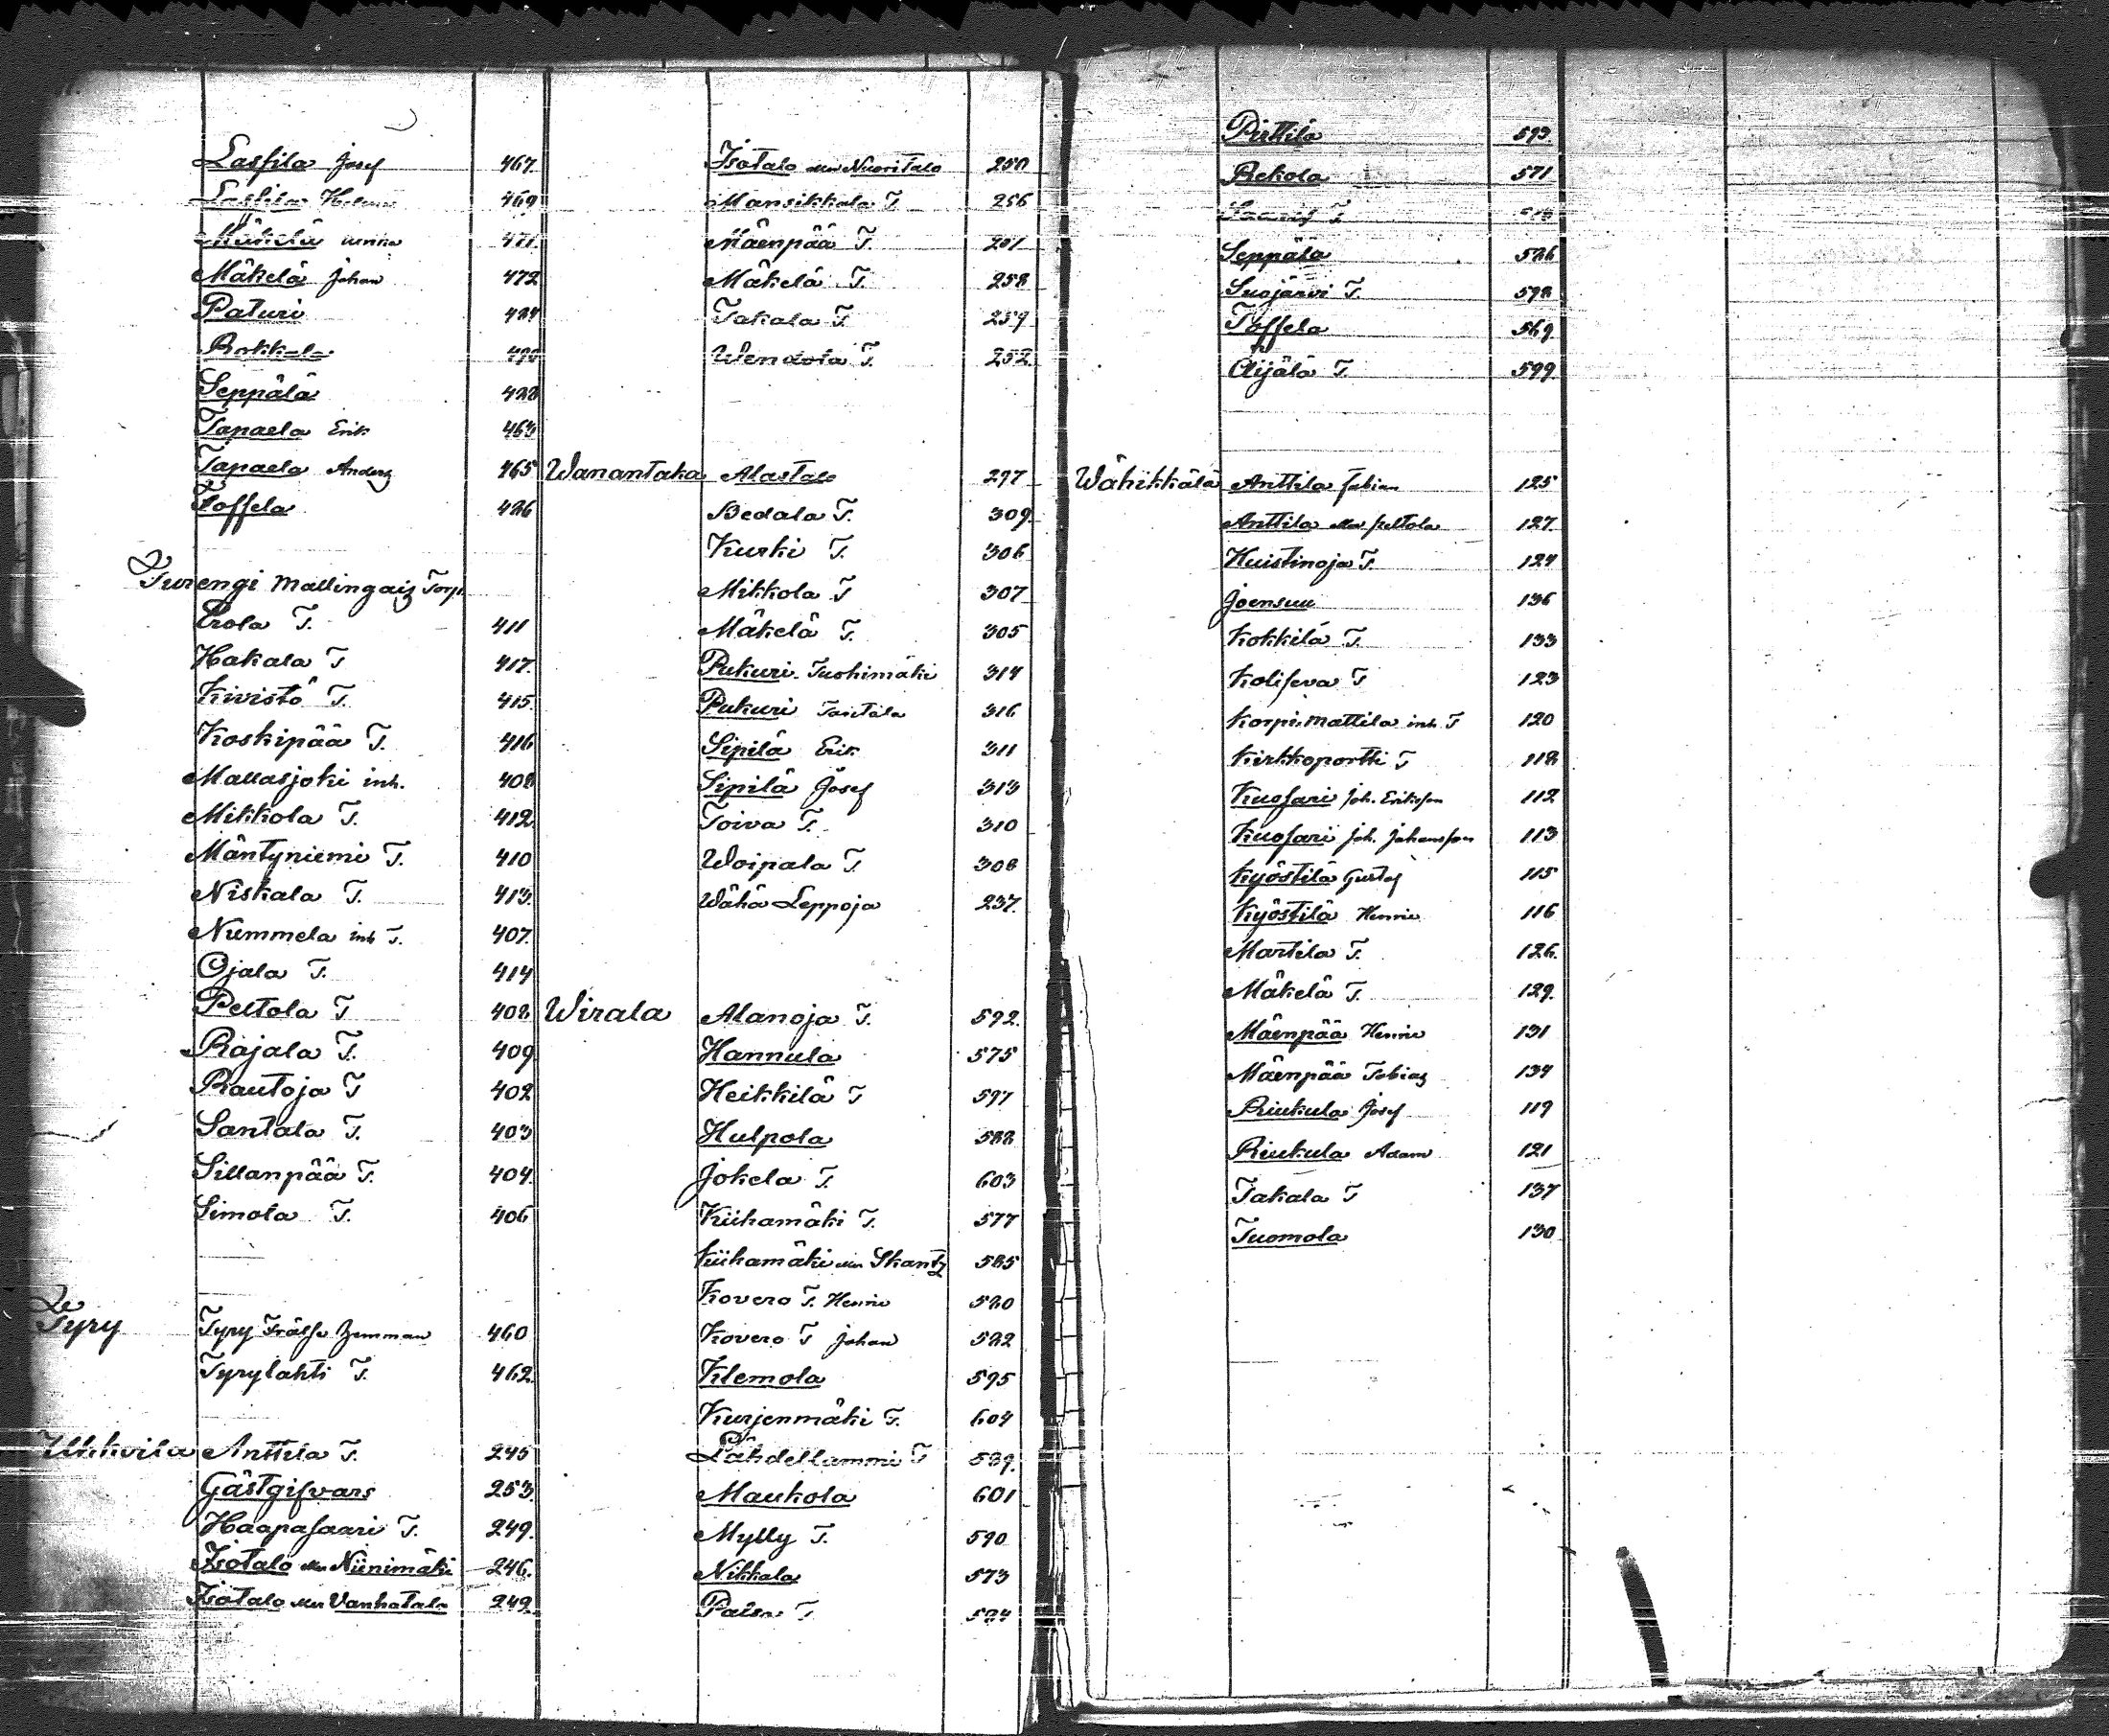 Lassila Josef 467.
Lassila Helena 469
Mäkelä 471.
Mäkelä Johan 472
Paturi
Rokkala
Seppälä 428
Tapaela Erik 463
Tapaela Anders 465
Toffela 426
Turengi Mallingais Torp.
Erola T. 411
Hakala T 417.
Kivistö T. 415.
Koskipää T. 416
Mallasjoki inh. 408
Mikkola T. 412
Mäntyniemi T. 410
Niskala T. 413.
Nummela inh T. 407.
Ojala T. 414
Peltola T 408
Rajala T. 409
Rautoja T 402
Santala T. 403
Sillanpää T. 404.
Simola T. 406
Tyry Tyry Frälse 460
Tyrylahti T. 462.
Uhkoila Anttila T. 245
Gästgifvars 253.
Haapasaari T. 249.
Isotalo eller Niinimäki 246.
Isotalo eller Vanhatalo 242
Isotalo eller Nuoritalo 250
Mansikkala T 256
Mäenpää T.
Mäkelä T. 258
Takala T. 259
Wendola T. 252.
Wanantaka Alastalo 297
Bedala T. 309.
Kurki T. 306
Mikkola T 307
Mäkelä T. 305
Pukuri Tuohimäki 314
Pukuri 316
Sipilä Erik 311
Sipilä Josef 313
Toiva T. 310
Woipala T. 308
Wähä Leppoja 237.
Wirala Alanoja T. 592.
Hannula 575
Heikkilä T 597
Hulpola 588
Jokela T. 603
Kiihamäki T. 577
Kiihamäki eller Skantz 585
Kovero T. Henric 580
Kovero T Johan 582
Klemola 595
Kurjenmäki T. 604
Lähdellammi T
Maukola 601
Mylly T. 590
Nikkala 573
T 584
Pirttilä 593.
Rekola 571
T
Seppälä 586
Suojärvi T. 598
Toffela 569.
Äijälä T. 599
Wähikkälä Anttila Fabian 125
Anttila eller Peltola 127.
Huistinoja T. 124
Joensuu 136
Kokkila T. 133
Koliseva T 123
Korpi, Mattila inh. T 120
Kirkkoportti T 118
Kuosari Joh. Eriksson 112
Kuosari Joh. Johansson 113
Kyöstilä Gustaf 115
Kyöstilä Henric 116
Martila T. 126.
Mäkelä T. 129.
Mäenpää Henric 131
Mäenpää Tobias 134
Riukula Josef 119
Riukula Adam 121
Takala T 137
Tuomola 130